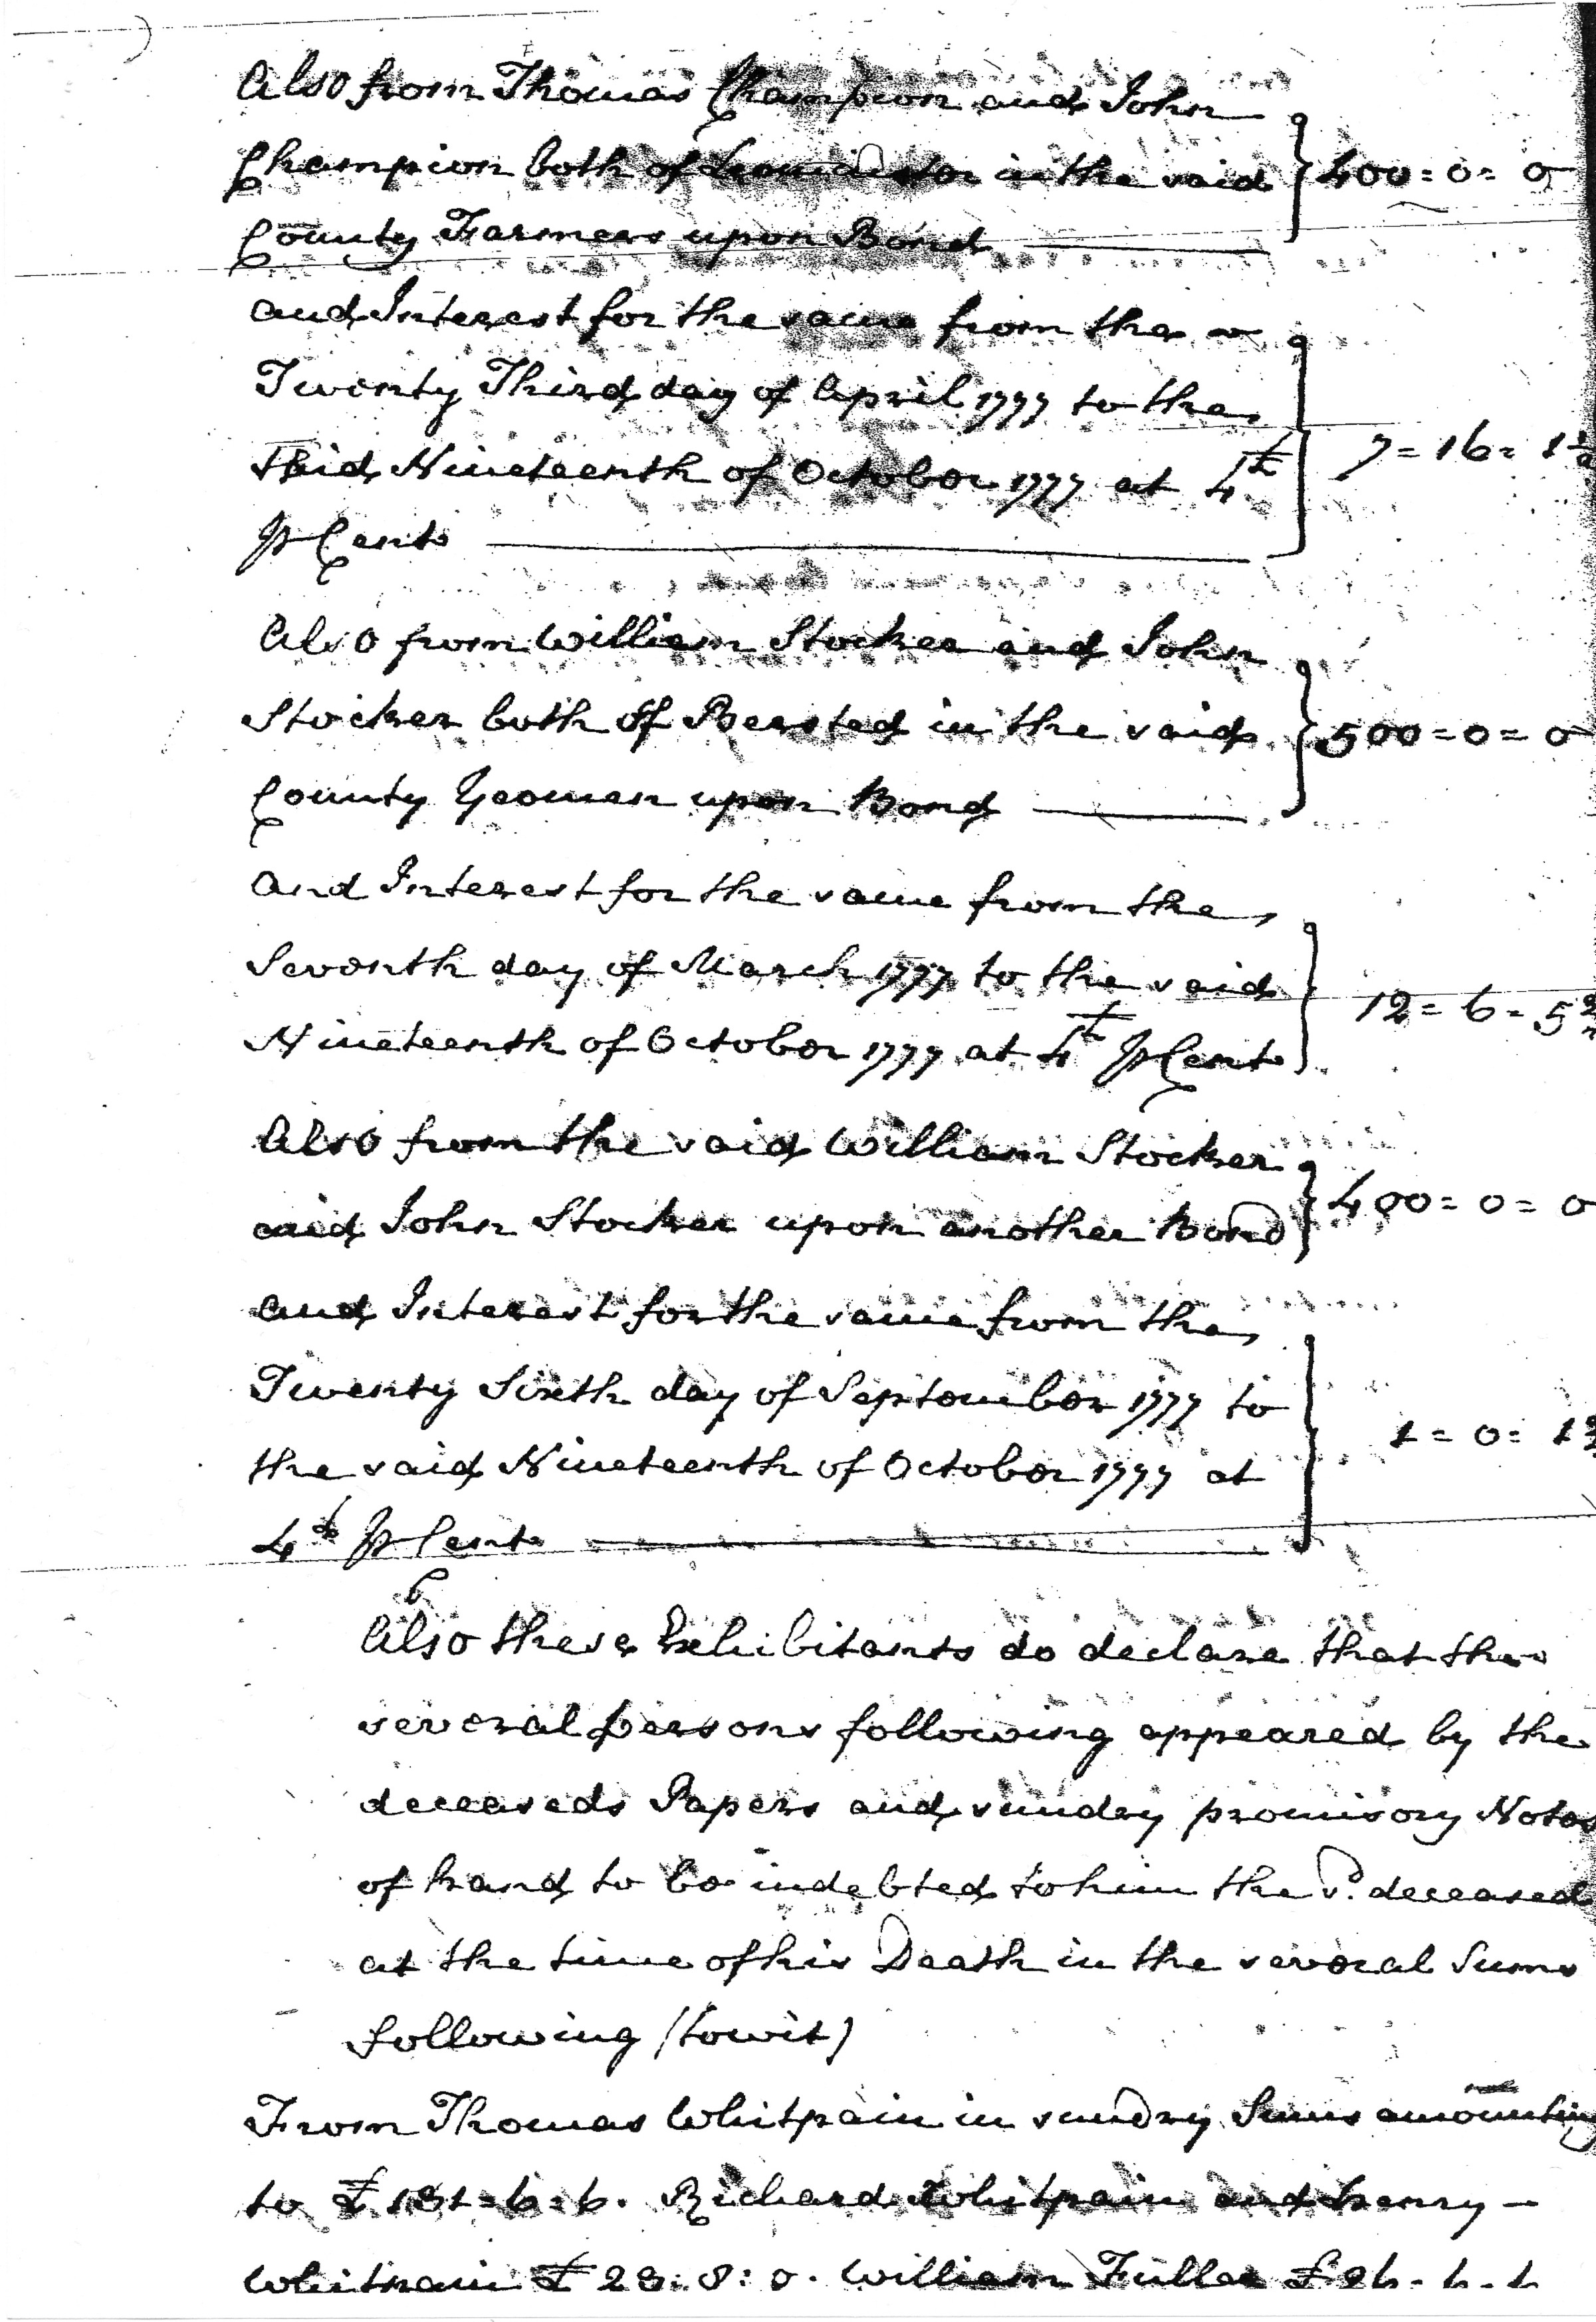 Also from Thomas Champion and John
Champion both of in the said } 400 = 0 = 0
County Farmers upon Bond
and Interest for the same from the
Twenty Third day of April 1777 to the
said Nineteenth of October 1777 at 4 } 7 = 16 = 1
P Cent
Also from William Stocker and John
Stocker both of Bersted in the said } 500 = 0 = 0
County Yeomen upon Bond
and Interest for the same from the
Seventh day of March 1777 to the said } 12 = 6 = 5
Nineteenth of October 1777 at 4 P Cent
Also from the said William Stocker
and John Stocker upon another Bond } 400 = 0 = 0
and Interest for the same from the
Twenty Sixth day of September 1777 to
the said Nineteenth of October 1777 at } 1 = 0 = 1
4 P Cent
Also these Exhibitants do declare that the
several persons following appeared by the
deceaseds Papers and sundry promisory Notes
of hand to be indebted to him the sd. deceased
at the time of his Death in the several Sums
following (towit)
From Thomas Whitpain in sundry Sums amounting
to £ = 6 = 6. Richard Whitpain and Henry
Whitpain £ 28: 8: 0. William Fuller £